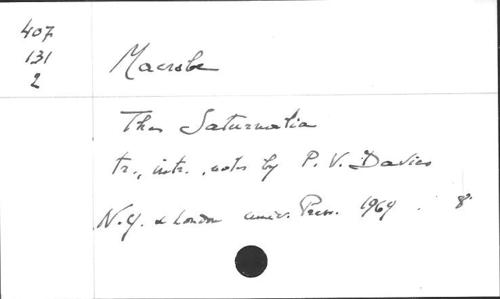 407
131
2
Macrobe
The Saturnalia
tr., intr., notes by P. V. Davies
N.Y. & London Univ. Press. 1969 . 8°